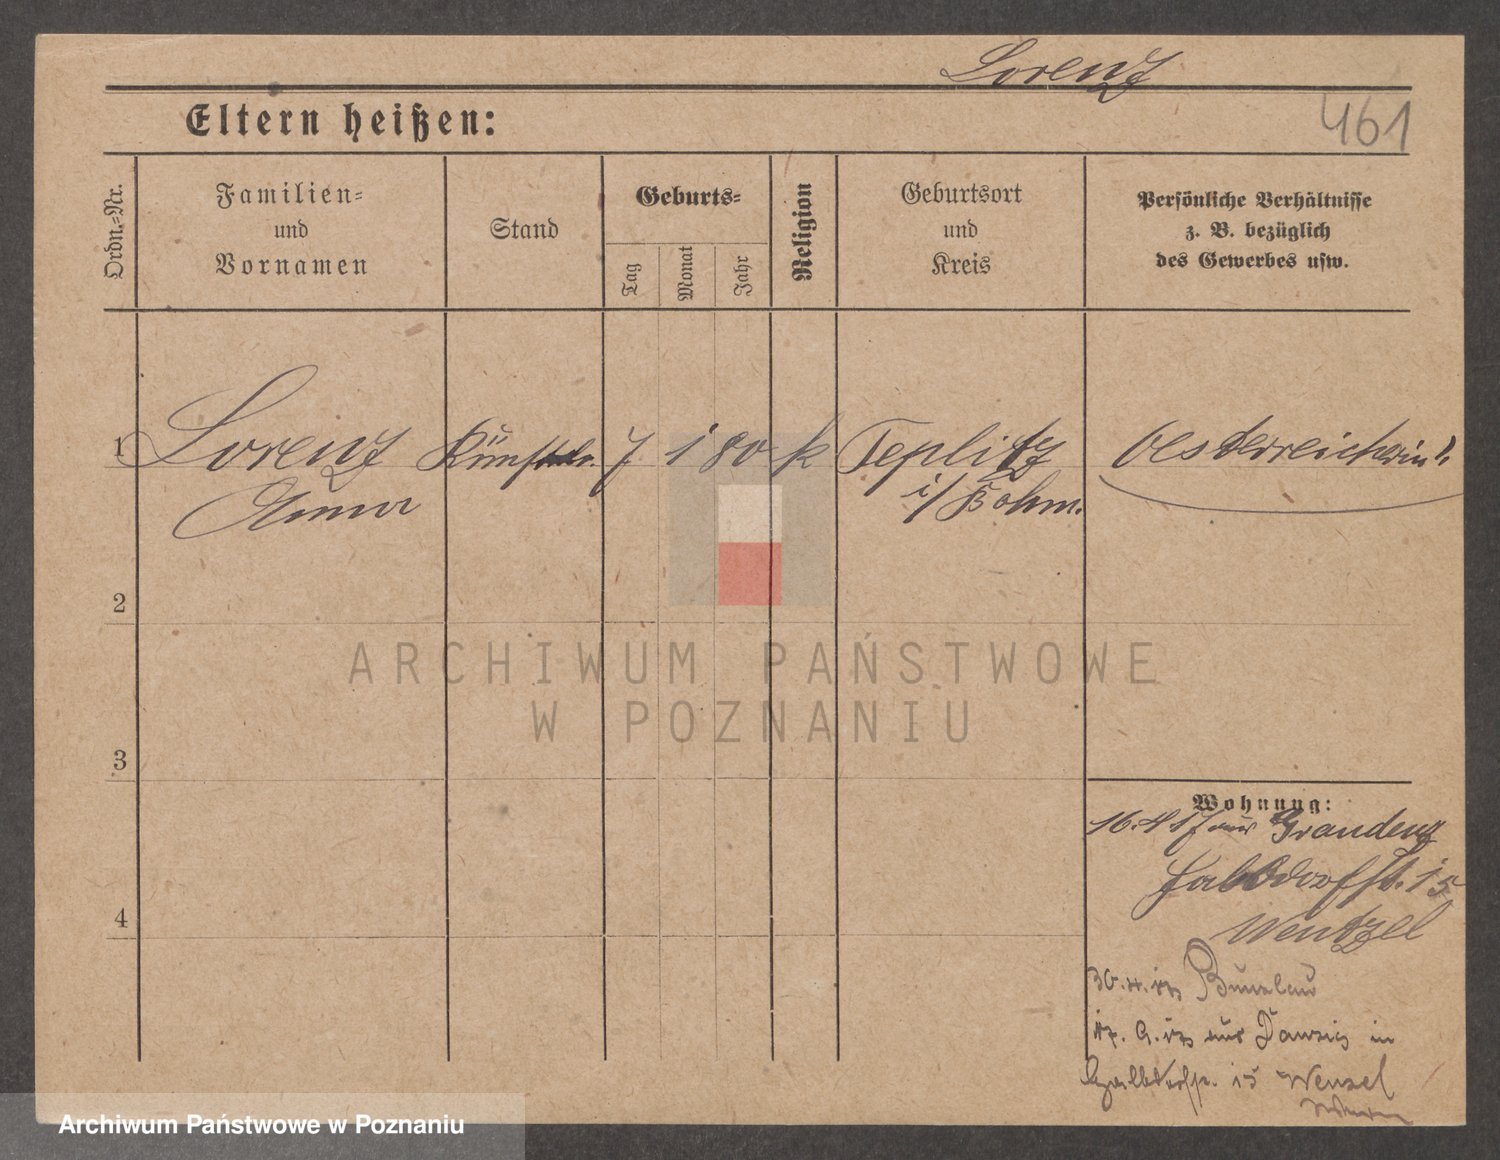 Lorenz
Eltern heißen:
461
Ordn.-Nr.
Familien-
und
Vornamen
Stand
Geburts-
Tag
Monat
Jahr
Religion
Geburtsort
und
Kreis
Persönliche Verhältnisse
z. B. bezüglich
des Gewerbes usw.
1 Lorenz 7 1 80 k Teplitz Oesterreicherin
Anna i/Böhm.
2
ARCHIWUM PAŃSTWOWE
W POZNANIU
3
Wohnung:
16. 4 17 aus Graudenz
15
4
Wentzel
Bunzlau
aus Danzig in
15 Wenzel
Archiwum Państwowe w Poznaniu